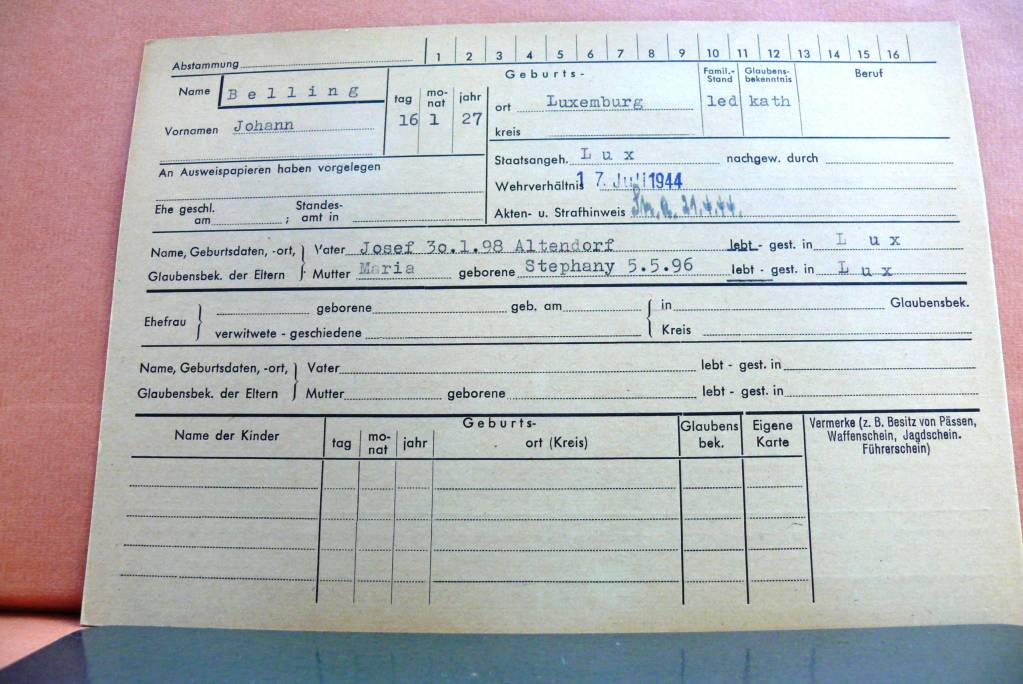 Abstammung 1 2 3 4 5 6 7 8 9 10 11 12 13 14 15 16
Name Belling
tag mo-nat jahr
Geburts-
Famil.-Stand
Glaubens-bekenntnis
Beruf
Vornamen Johann
16 1 27
ort Luxemburg
led kath
kreis
An Ausweispapieren haben vorgelegen
Staatsangeh. Lux nachgew. durch
Wehrverhältnis 17. Juli 1944
Ehe geschl. am ; Standes-amt in
Akten- u. Strafhinweis
Name, Geburtsdaten, -ort, Vater Josef 30.1.98 Altendorf lebt - gest. in Lux
Glaubensbek. der Eltern Mutter Maria geborene Stephany 5.5.96 lebt - gest. in Lux
Ehefrau geborene geb. am in Glaubensbek.
verwitwete - geschiedene Kreis
Name, Geburtsdaten, -ort, Vater lebt - gest. in
Glaubensbek. der Eltern Mutter geborene lebt - gest. in
Name der Kinder
Geburts-
tag mo-nat jahr ort (Kreis)
Glaubens bek.
Eigene Karte
Vermerke (z. B. Besitz von Pässen,
Waffenschein, Jagdschein.
Führerschein)